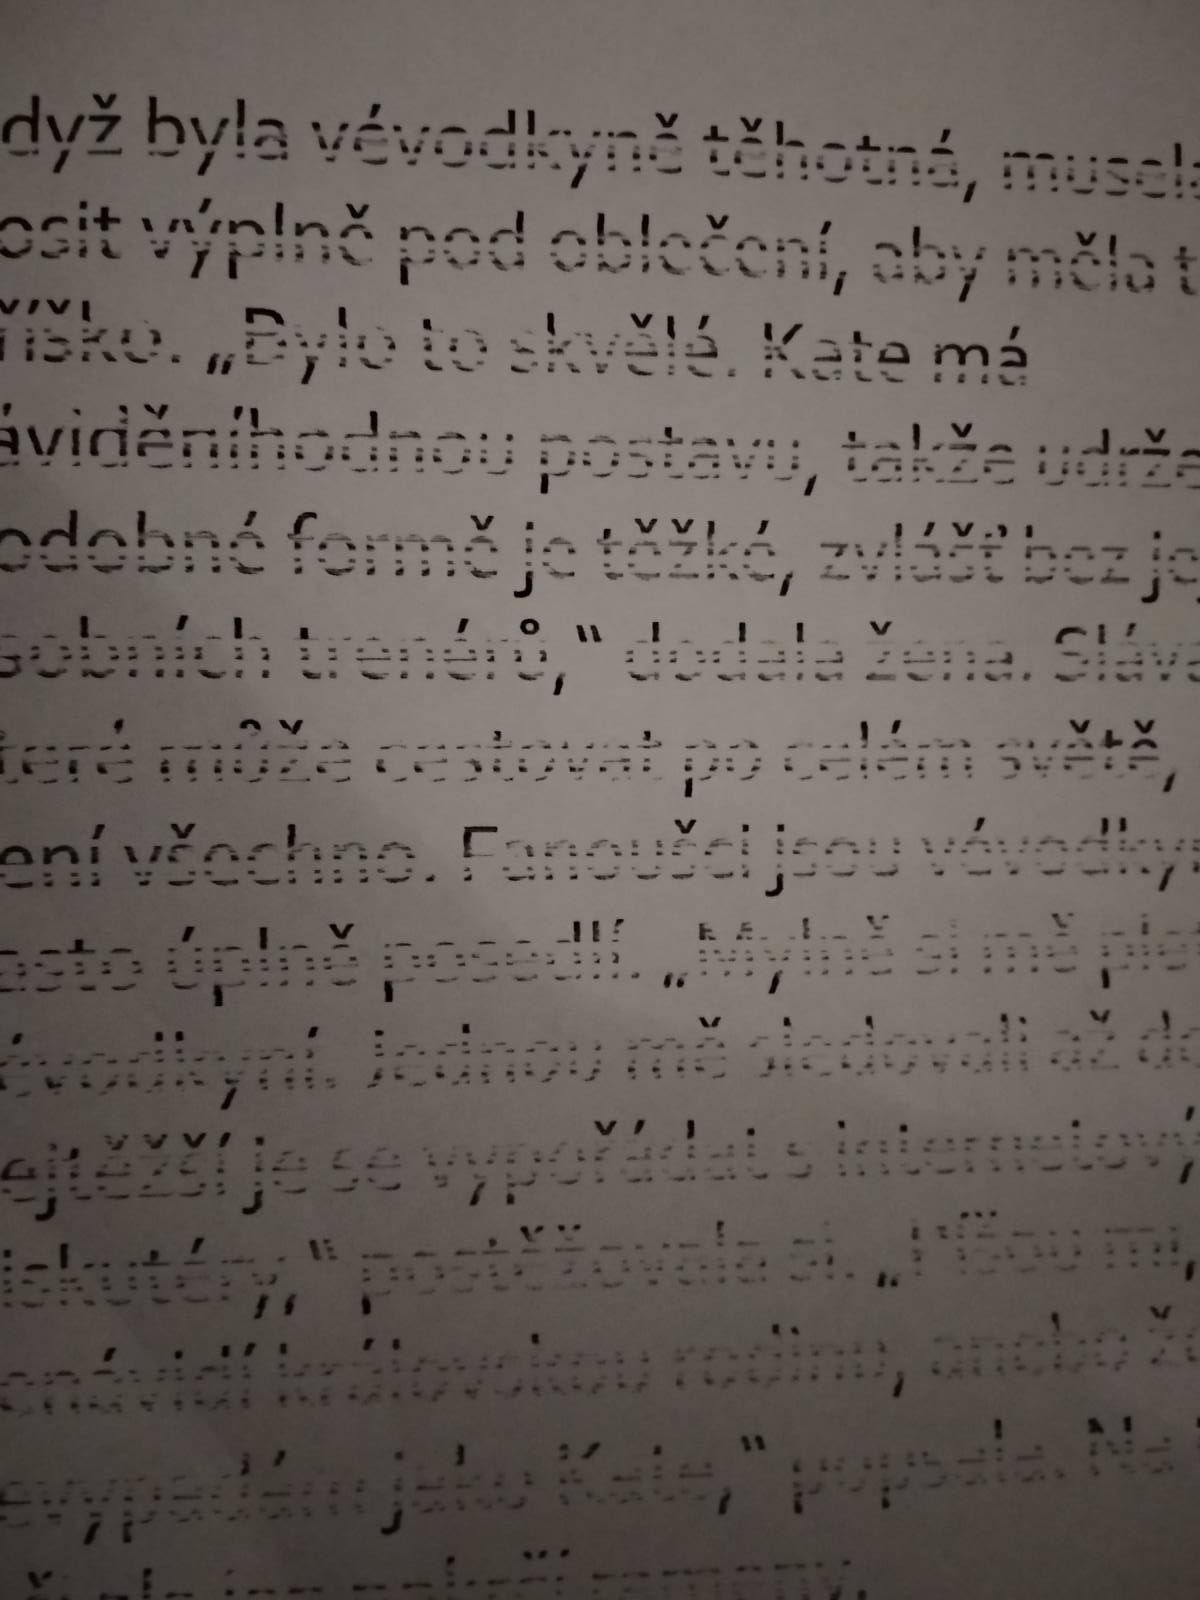 dyž byla vévodkyně těhotná, musela
osit výplně pod oblečení, aby měla t
říško. „Bylo to skvělé. Kate má
áviděníhodnou postavu, takže udrže
odobné formě je těžké, zvlášť bez jej
sobních trenérů,“ dodala žena. Sláva
teré může cestovat po celém světě,
ení všechno. Fanoušci jsou vévodky
asto úplně posedlí. „Mylně si mě
évodkyní. Jednou mě sledovali až do
ejtěžší je se vypořádat s internetový
“ postěžovala si.
enávidí královskou rodinu, anebo ž
evypadám jako Kate,“ popsala. Na